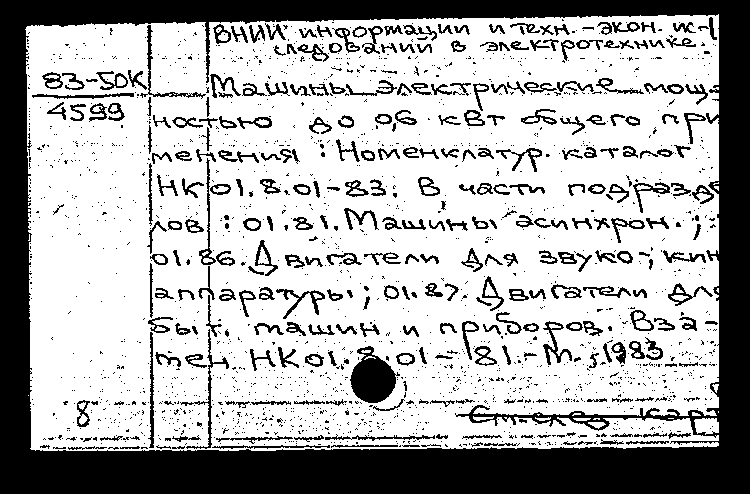 ВНИИ информации и техн.-экон. ис-
следований в электротехнике.
83-50К
4599
Машины электрические мощ
ностью до 0,6 кВт общего при
менения : Номенклатур. каталог
НК 01.8.01-83. В части подразде
лов : 01.81. Машины асинхрон.;
01.86. Двигатели для звуко-, кин
аппаратуры; 01.87. Двигатели для
быт. машин и приборов. Вза-
мен НК 01.8.01-81.-М., 1983.
8
См.след карт